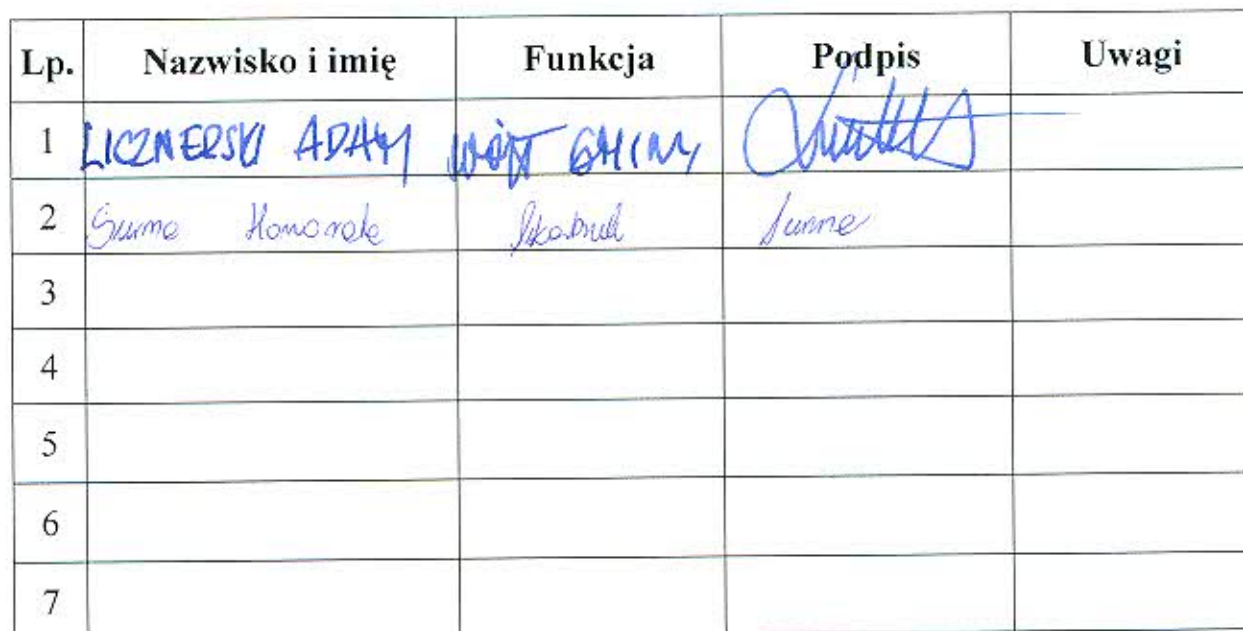 Lp. Nazwisko i imię Funkcja Podpis Uwagi
1 LICZNERSKI ADAM WÓJT GMINY
2 Suma Honorata Skarbnik
3
4
5
6
7